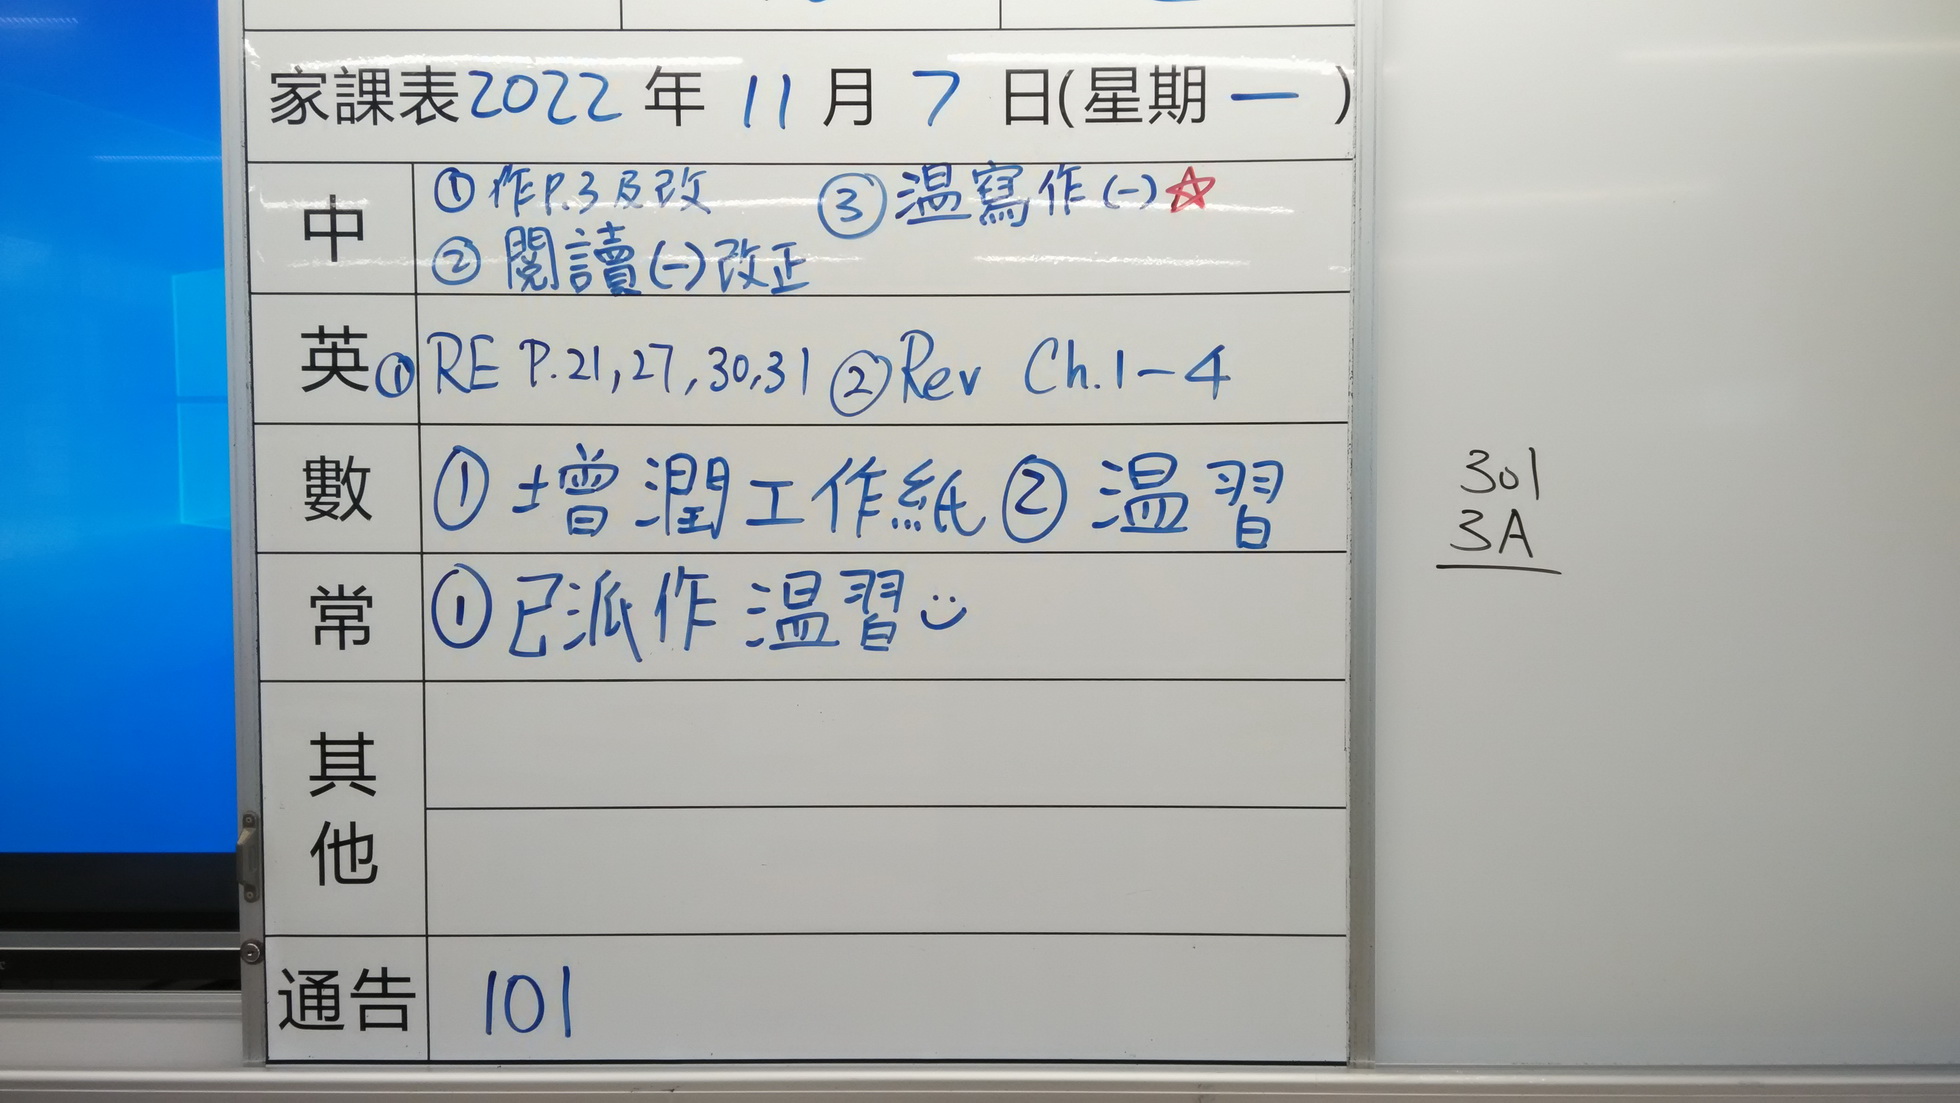 家課表2022年11月7日(星期一)
中 ①作P.3及改 ③温寫作(一)☆
②閱讀(一)改正
英①RE P.21,27,30,31 ②Rev Ch.1-4
數 ①增潤工作紙②温習
301
3A
常 ①已派作温習
其他
通告 101